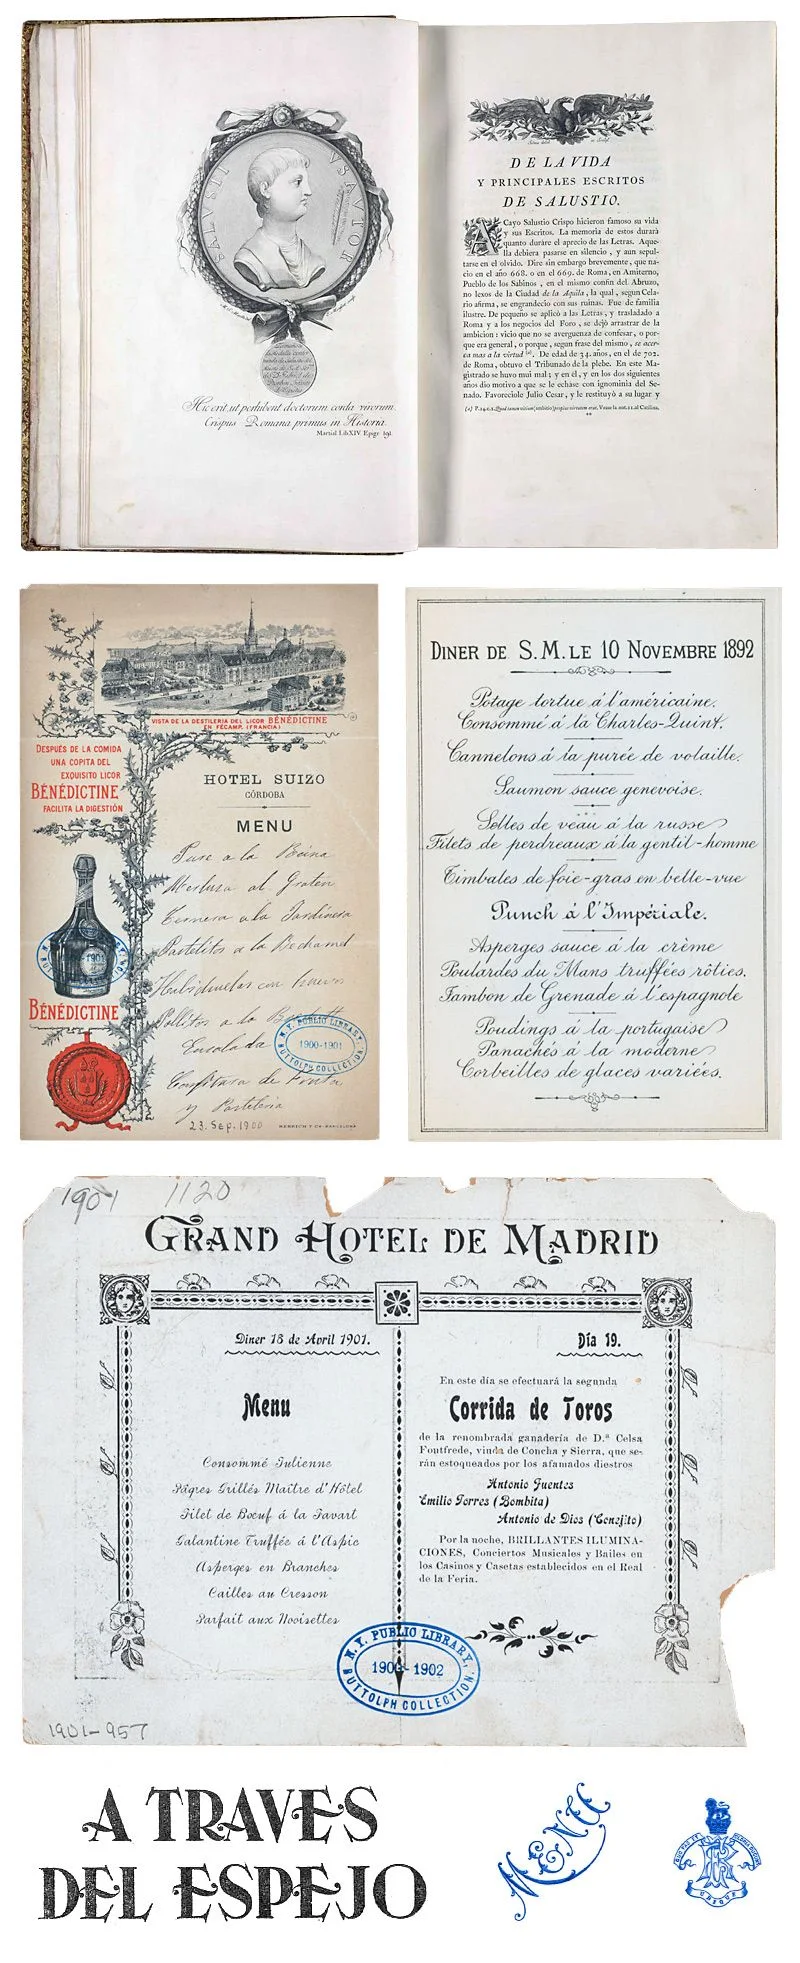 SALUSTI
VS AUTOR
Hic erit, ut perhibent doctorum corda virorum,
Crispus Romana primus in Historia.
Martial Lib XIV. Epigr. 191.
DE LA VIDA
Y PRINCIPALES ESCRITOS
DE SALUSTIO.
A Cayo Salustio Crispo hicieron famoso su vida
y sus Escritos. La memoria de estos durará
quanto duráre el aprecio de las Letras. Aque-
lla debiera pasarse en silencio, y aun sepul-
tarse en el olvido. Dire sin embargo brevemente, que na-
cio en el año 668. o en el 669. de Roma, en Amiterno,
Pueblo de los Sabinos, en el mismo confin del Abruzo,
no lexos de la Ciudad de la Aquila, la qual, segun Cela-
rio afirma, se engrandecio con sus ruinas. Fue de familia
ilustre. De pequeño se aplicó a las Letras, y trasladado a
Roma y a los negocios del Foro, se dejó arrastrar de la
ambicion: vicio que no se averguenza de confesar, o por-
que era general, o porque, segun frase del mismo, se acer-
ca mas a la virtud (a). De edad de 34. años, en el de 702.
de Roma, obtuvo el Tribunado de la plebe. En este Ma-
gistrado se huvo mui mal; y en él, y en los dos siguientes
años dio motivo a que se le echase con ignominia del Se-
nado. Favoreciole Julio Cesar, y le restituyó a su lugar y
VISTA DE LA DESTILERIA DEL LICOR BÉNÉDICTINE
EN FÉCAMP. (FRANCIA)
DESPUÉS DE LA COMIDA
UNA COPITA DEL
EXQUISITO LICOR
BÉNÉDICTINE
FACILITA LA DIGESTIÓN
HOTEL SUIZO
CÓRDOBA
MENU
Pure a la Reina
Merluza al Graten
Ternera a la Jardinera
Pastelitos a la Bechamel
con huevos
Pollitos a la
Ensalada
Confitura de Fruta
y Pasteleria
23. Sep. 1900
BÉNÉDICTINE
N.Y. PUBLIC LIBRARY,
1900-1901
BUTTOLPH COLLECTION.
HENRICH Y Cª-BARCELONA
DINER DE S. M. LE 10 NOVEMBRE 1892
Potage tortue á l'américaine.
Consommé á la Charles-Quint.
Cannelons á la purée de volaille.
Saumon sauce genevoise.
Selles de veau á la russe
Filets de perdreaux á la gentil-homme
Timbales de foie-gras en belle-vue
Punch á l'Impériale.
Asperges sauce á la crême
Poulardes du Mans truffées rôties.
Jambon de Grenade á l'espagnole
Poudings á la portugaise
Panachés á la moderne
Corbeilles de glaces variées.
1901 1120
GRAND HOTEL DE MADRID
Diner 18 de Avril 1901.
Menu
Consommé Julienne
Pâgres Grillés Maître d'Hôtel
Filet de Bœuf á la Favart
Galantine Truffée á l'Aspic
Asperges en Branches
Cailles au Cresson
Parfait aux Noisettes
Día 19.
En este día se efectuará la segunda
Corrida de Toros
de la renombrada ganadería de D.ª Celsa
Fontfrede, viuda de Concha y Sierra, que se-
rán estoqueados por los afamados diestros
Antonio Fuentes
Emilio Torres (Bombita)
Antonio de Dios (Conejito)
Por la noche, BRILLANTES ILUMINA-
CIONES, Conciertos Musicales y Bailes en
los Casinos y Casetas establecidos en el Real
de la Feria.
N.Y. PUBLIC LIBRARY,
1901-1902
BUTTOLPH COLLECTION.
1901-957
A TRAVES
DEL ESPEJO
MENU